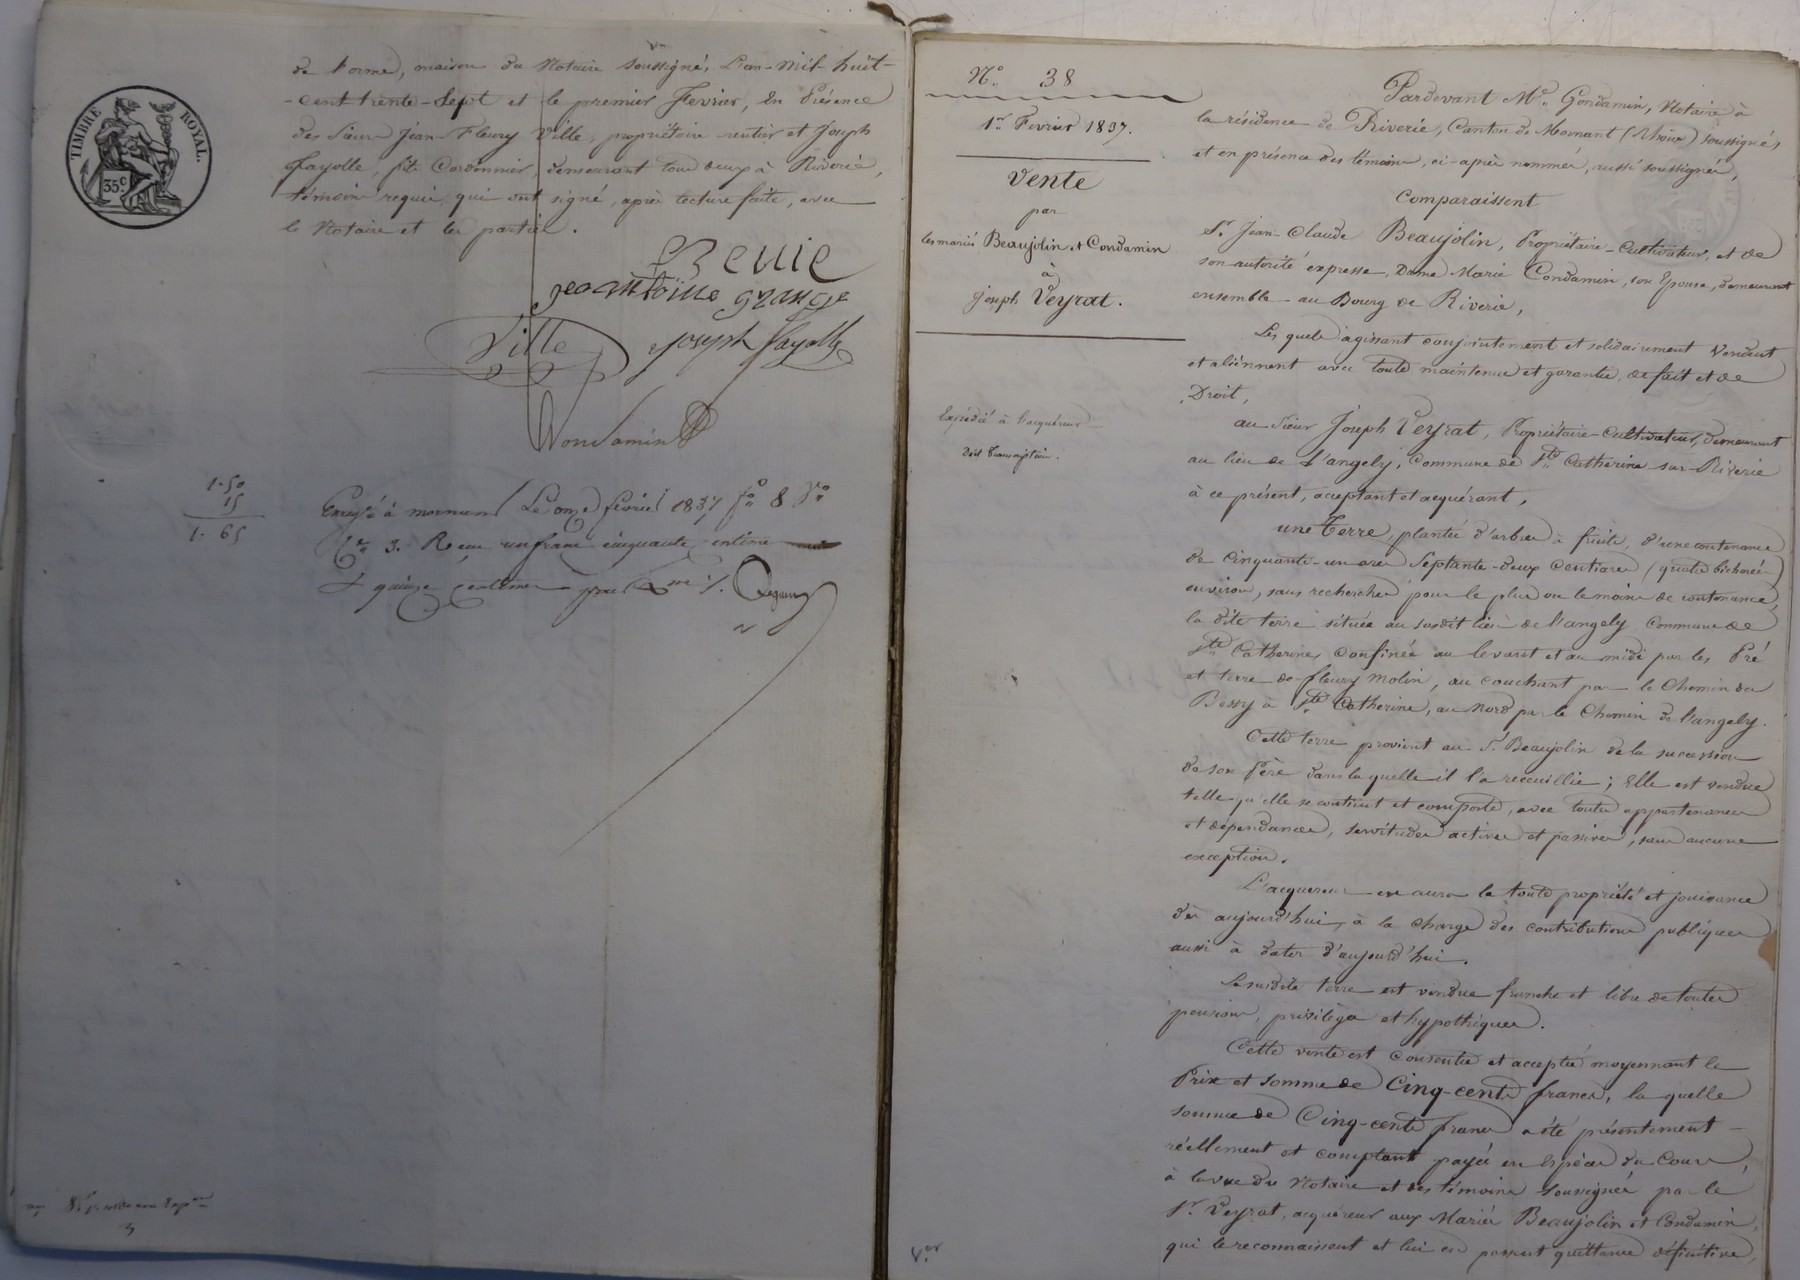 TIMBRE ROYAL.
35c
de forme, maison du Notaire soussigné, L'an-Mil-huit-
-cent trente-Sept et le premier Fevrier, En Présence
des Sieurs Jean-Fleury Ville, propriétaire-rentier et Joseph
Fayolle, fils Cordonnier, demeurant tous deux à Riverie,
témoins requis, qui ont signé, après lecture faite, avec
le Notaire et les parties.
jeantoine grange
Ville joseph fayolle
Condamin
1.50
15
1.65
Enregté à mornant Le onze février 1837 fo 8 Vo
Ce 3. Reçu un franc cinquante centimes
& quinze centimes pour
3
No 38
1er Fevrier 1837.
Vente
par
les mariés Beaujolin et Condamin
à
joseph Veyrat.
Expédié à l'acquéreur
doit transcription.
Pardevant Me Condamin, Notaire à
la résidence de Riverie, Canton de Mornant (Rhône) soussignés
et en présence des témoins, ci-après nommés, aussi soussignés,
Comparaissent
Sr. Jean-Claude Beaujolin, Propriétaire-Cultivateur, et de
son autorité expresse, Dame Marie Condamin, son Epouse, demeurant
ensemble au Bourg de Riverie,
Les quels agissant conjointement et solidairement Vendent
et aliénnent avec toute maintenue et garantie, de fait et de
Droit,
au Sieur Joseph Veyrat, Propriétaire-Cultivateur, demeurant
au lieu de L'angely, Commune de Ste Catherine sur-Riverie
à ce présent, acceptant et acquérant,
une Terre, plantée d'arbres à fruits, d'une contenance
de Cinquante-un ares Septante-deux Centiares (quatre bicherées)
environ, sans rechercher pour le plus ou le moins de contenance,
la dite terre située au susdit lieu de l'angely Commune de
Ste Catherine, confinée au levant et au midi par les Pré
et terre de fleury Molin, au couchant par le Chemin du
Bessy à Ste Catherine, au Nord par le Chemin de l'angely.
Cette terre provient au Sr. Beaujolin de la succession
de son Père dans la quelle il l'a receuillie; Elle est vendue
telle qu'elle se contient et comporte, avec toutes appartenances
et dépendances, servitudes actives et passives, sans aucune
exception.
L'acquéreur en aura la toute propriété et jouissance
dès aujourd'hui, à la charge des contributions publiques
aussi à dater d'aujourd'hui.
La susdite terre est vendue franche et libre de toutes
pensions, privilèges et hypothèques.
Cette vente est consentie et acceptée moyennant le
Prix et somme de Cinq-cents francs, la quelle
somme de Cinq-cents francs a été présentement
réellement et comptant payée en Espèces du Cours,
à la vue du Notaire et des témoins soussignés par le
Sr. Veyrat, acquéreur aux Mariés Beaujolin et Condamin,
qui le reconnaissent et lui en passent quittance définitive,